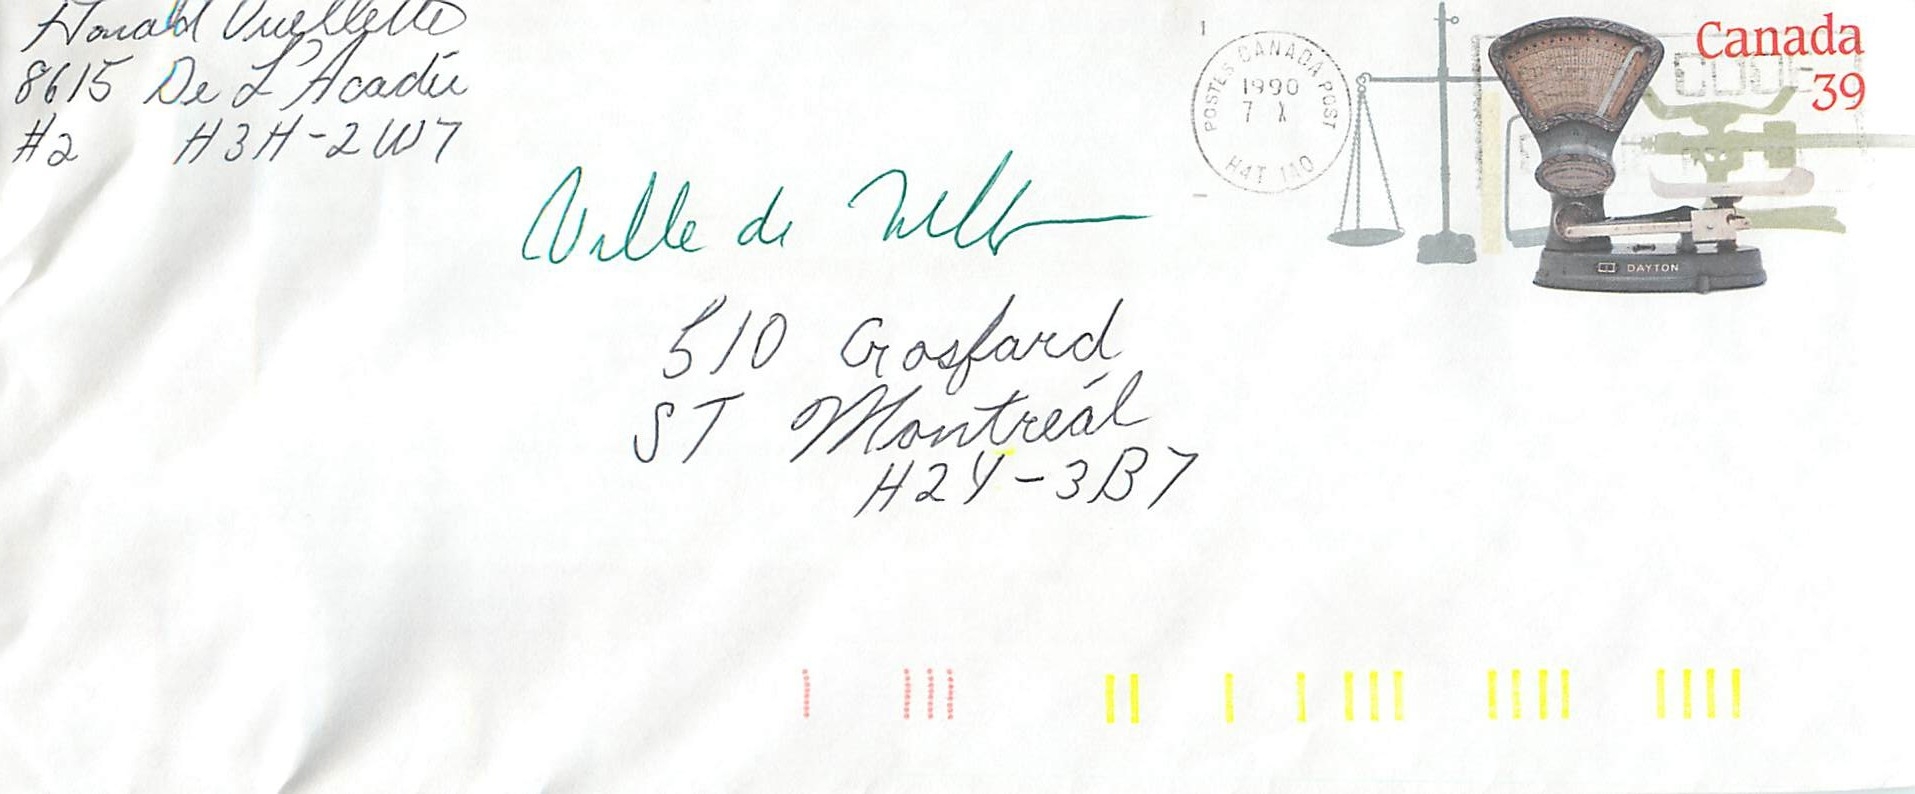 Donald Ouellette
8615 De L'Acadie
#2 H3H-2W7
POSTES CANADA POST
1990
7 X
H4T 1A0
Canada
39
DAYTON
Ville de
510 Gosford
ST Montréal
H2Y-3B7